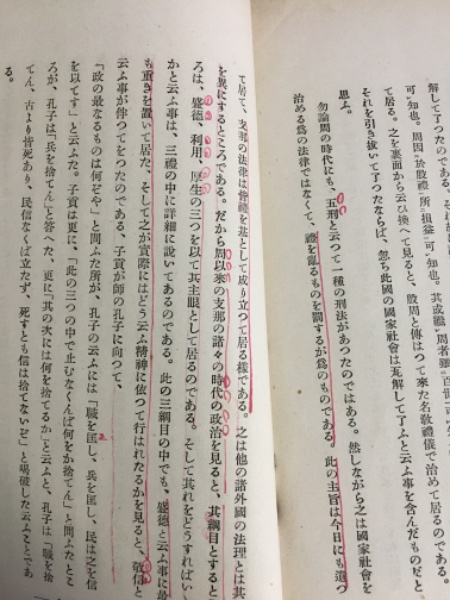 解して了つたのである。
可知也。周因於殷禮所損益可知也。其或繼周者雖百世可
て居る。之を裏面から云ひ換へて見ると、殷周と傳はつて來た名敎禮儀で治めて居るのである。
それを引き拔いて了つたならば、忽ち此國の國家社會は瓦解して了ふと云ふ事を含んだものだと
思ふ。
勿論周の時代にも、五刑と云つて一種の刑法があつたのではある。然しながら之は國家を
治める爲の法律ではなくて、禮を亂るものを罰するが爲のものである。此の主旨は今日にも遺つ
て居て、支那の法律は皆禮を基として成り立つて居る樣である。之は他の諸外國の法理とは其
を異にするところである。だから周以來の支那の諸々の時代の政治を見ると、其綱目とすると
ろは、盛德、利用、厚生の三つを以て其主眼として居るのである。そして其れをどうすればい
かと云ふ事は、三禮の中に詳細に說いてあるのである。此の三綱目の中でも、盛德と云ふ事に最
も重きを置いて居た、そして之が實際にはどう云ふ精神に依つて行はれたるかを見ると、敬信と
云ふ事が伴つてをつたのである、子貢が師の孔子に向つて、
「政の最なるものは何ぞや」と問ふた所が、孔子の云ふには「職を匡し、兵を匡し、民は之を信
を以てす」と云ふた。子貢は更に、「此の三つの中で止むなくんば何をか捨てん」と問ふたとこ
ろが、孔子は「兵を捨てん」と答へた、更に「其の次には何を捨てるか」と云ふと、孔子は「職を捨
てん、古より皆死あり、民信なくば立たず、死すとも信は捨てないぞ」と喝破した云ふことであ
る。